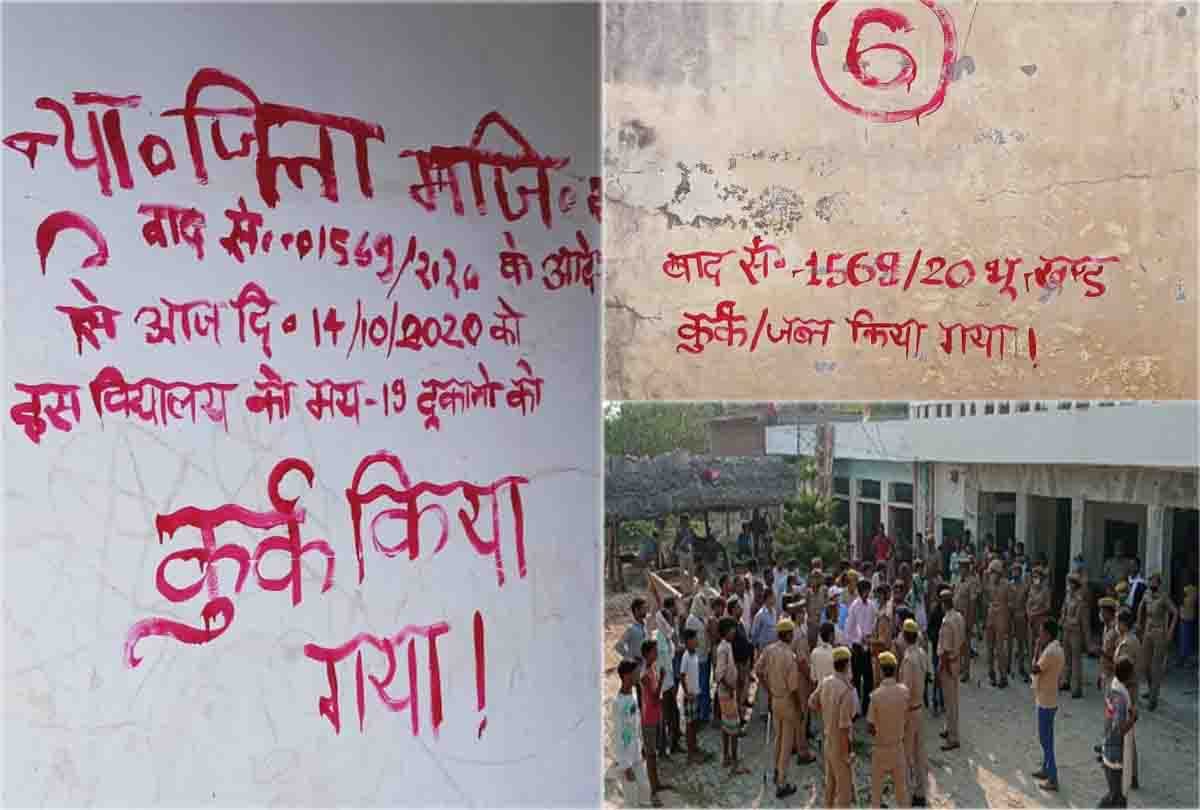 न्या॰ जिला मजि॰
वाद सं॰ 01569/2020 के आदे
से आज दि॰ 14/10/2020 को
इस विद्यालय को मय-19 दूकानो को
कुर्क किया
गया!
6
वाद सं॰-1569/20 भू,खण्ड
कुर्क/जब्त किया गया!